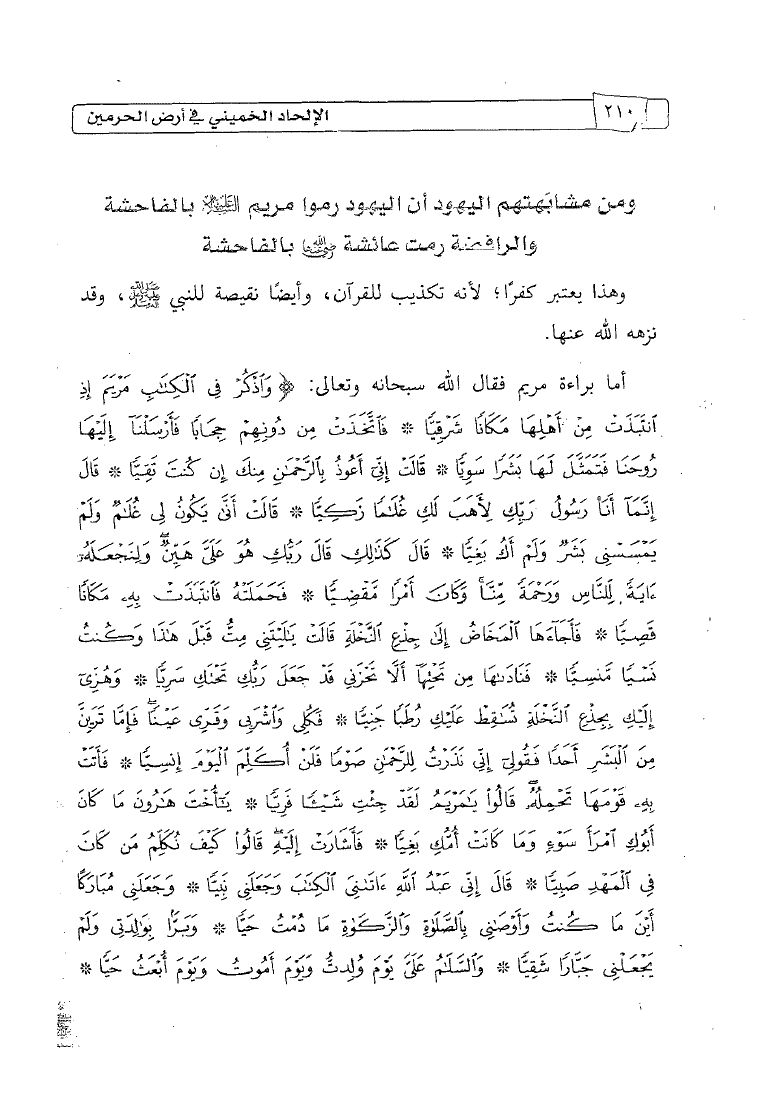 ٢١٠
الإلحاد الخميني في أرض الحرمين
ومن مشابهتهم اليهود أن اليهود رموا مريم عليها السلام بالفاحشة
والرافضة رمت عائشة رضي الله عنها بالفاحشة
وهذا يعتبر كفرًا؛ لأنه تكذيب للقرآن، وأيضًا نقيصة للنبي ﷺ، وقد
نزهه الله عنها.
أما براءة مريم فقال الله سبحانه وتعالى: ﴿ وَٱذۡكُرۡ فِي ٱلۡكِتَٰبِ مَرۡيَمَ إِذِ
ٱنتَبَذَتۡ مِنۡ أَهۡلِهَا مَكَانٗا شَرۡقِيّٗا * فَٱتَّخَذَتۡ مِن دُونِهِمۡ حِجَابٗا فَأَرۡسَلۡنَآ إِلَيۡهَا
رُوحَنَا فَتَمَثَّلَ لَهَا بَشَرٗا سَوِيّٗا * قَالَتۡ إِنِّيٓ أَعُوذُ بِٱلرَّحۡمَٰنِ مِنكَ إِن كُنتَ تَقِيّٗا * قَالَ
إِنَّمَآ أَنَا۠ رَسُولُ رَبِّكِ لِأَهَبَ لَكِ غُلَٰمٗا زَكِيّٗا * قَالَتۡ أَنَّىٰ يَكُونُ لِي غُلَٰمٞ وَلَمۡ
يَمۡسَسۡنِي بَشَرٞ وَلَمۡ أَكُ بَغِيّٗا * قَالَ كَذَٰلِكِ قَالَ رَبُّكِ هُوَ عَلَيَّ هَيِّنٞۖ وَلِنَجۡعَلَهُۥٓ
ءَايَةٗ لِّلنَّاسِ وَرَحۡمَةٗ مِّنَّاۚ وَكَانَ أَمۡرٗا مَّقۡضِيّٗا * فَحَمَلَتۡهُ فَٱنتَبَذَتۡ بِهِۦ مَكَانٗا
قَصِيّٗا * فَأَجَآءَهَا ٱلۡمَخَاضُ إِلَىٰ جِذۡعِ ٱلنَّخۡلَةِ قَالَتۡ يَٰلَيۡتَنِي مِتُّ قَبۡلَ هَٰذَا وَكُنتُ
نَسۡيٗا مَّنسِيّٗا * فَنَادَىٰهَا مِن تَحۡتِهَآ أَلَّا تَحۡزَنِي قَدۡ جَعَلَ رَبُّكِ تَحۡتَكِ سَرِيّٗا * وَهُزِّيٓ
إِلَيۡكِ بِجِذۡعِ ٱلنَّخۡلَةِ تُسَٰقِطۡ عَلَيۡكِ رُطَبٗا جَنِيّٗا * فَكُلِي وَٱشۡرَبِي وَقَرِّي عَيۡنٗاۖ فَإِمَّا تَرَيِنَّ
مِنَ ٱلۡبَشَرِ أَحَدٗا فَقُولِيٓ إِنِّي نَذَرۡتُ لِلرَّحۡمَٰنِ صَوۡمٗا فَلَنۡ أُكَلِّمَ ٱلۡيَوۡمَ إِنسِيّٗا * فَأَتَتۡ
بِهِۦ قَوۡمَهَا تَحۡمِلُهُۥۖ قَالُواْ يَٰمَرۡيَمُ لَقَدۡ جِئۡتِ شَيۡـٔٗا فَرِيّٗا * يَٰٓأُخۡتَ هَٰرُونَ مَا كَانَ
أَبُوكِ ٱمۡرَأَ سَوۡءٖ وَمَا كَانَتۡ أُمُّكِ بَغِيّٗا * فَأَشَارَتۡ إِلَيۡهِۖ قَالُواْ كَيۡفَ نُكَلِّمُ مَن كَانَ
فِي ٱلۡمَهۡدِ صَبِيّٗا * قَالَ إِنِّي عَبۡدُ ٱللَّهِ ءَاتَىٰنِيَ ٱلۡكِتَٰبَ وَجَعَلَنِي نَبِيّٗا * وَجَعَلَنِي مُبَارَكًا
أَيۡنَ مَا كُنتُ وَأَوۡصَٰنِي بِٱلصَّلَوٰةِ وَٱلزَّكَوٰةِ مَا دُمۡتُ حَيّٗا * وَبَرَّۢا بِوَٰلِدَتِي وَلَمۡ
يَجۡعَلۡنِي جَبَّارٗا شَقِيّٗا * وَٱلسَّلَٰمُ عَلَيَّ يَوۡمَ وُلِدتُّ وَيَوۡمَ أَمُوتُ وَيَوۡمَ أُبۡعَثُ حَيّٗا *